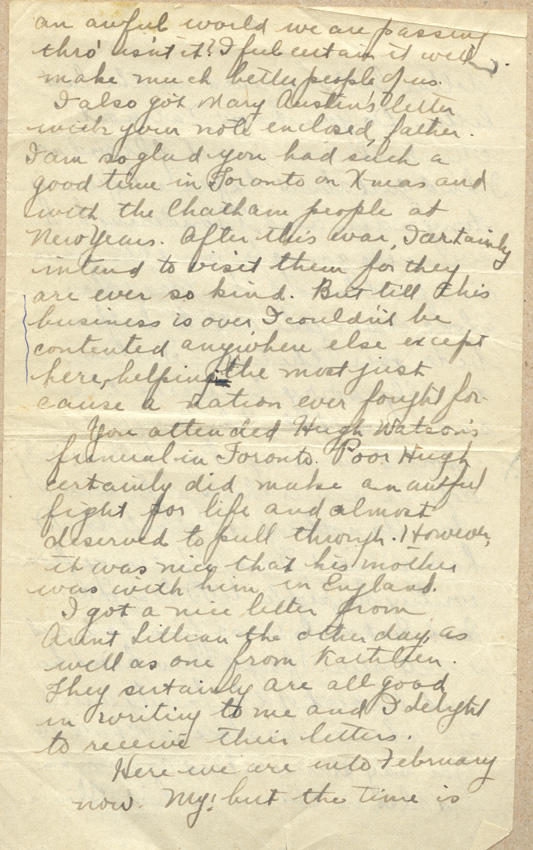 an awful world we are passing
thro' isn't it? I feel certain it will
make much better people of us.
I also got Mary Austin's letter
with your note enclosed, father.
I am so glad you had such a
good time in Toronto on Xmas and
with the Chatham people at
New Years. After this war, I certainly
intend to visit them for they
are ever so kind. But till this
business is over I couldn't be
contented anywhere else except
here, helping the most just
cause a nation ever fought for.
You attended Hugh Watson's
funeral in Toronto. Poor Hugh
certainly did make an awful
fight for life and almost
deserved to pull through. However,
it was nice that his mother
was with him in England.
I got a nice letter from
Aunt Lillian the other day, as
well as one from Kathleen.
They certainly are all good
in writing to me and I delight
to receive their letters.
Here we are into February
now. My! but the time is